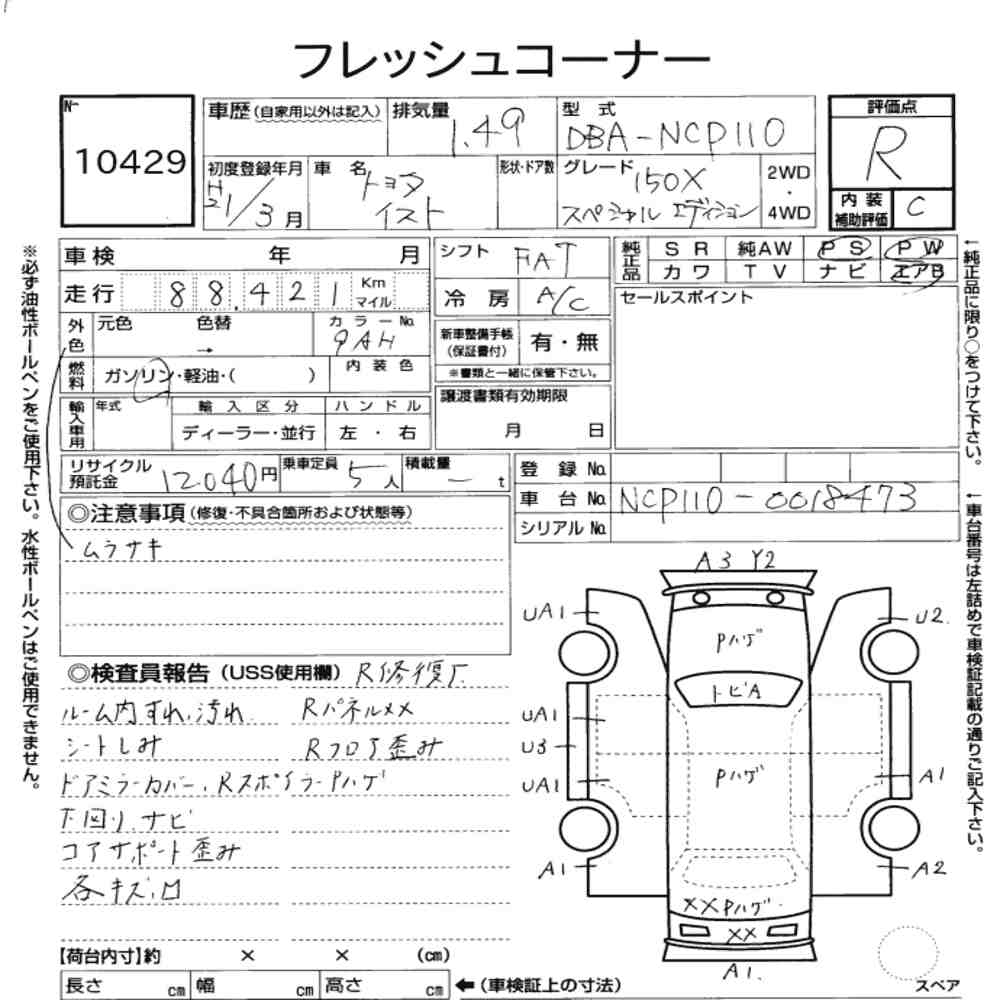 フレッシュコーナー
No.
10429
車歴(自家用以外は記入)
排気量
1.49
型 式
DBA-NCP110
評価点
R
内 装
補助評価
C
初度登録年月
H21/3月
車 名
トヨタ
イスト
形状・ドア数
グレード
150X
スペシャル エディション
2WD
・
4WD
車検 年 月
走行 88.421 Km
マイル
シフト FAT
冷 房 A/C
純正品
SR 純AW PS PW
カワ TV ナビ エアB
セールスポイント
外色
元色 色替
→
カラーNo.
9AH
新車整備手帳
(保証書付)
有・無
※書類と一緒に保管下さい。
燃料
ガソリン・軽油・( )
内 装 色
譲渡書類有効期限
月 日
輸入車用
年式
輸 入 区 分
ディーラー・並行
ハ ン ド ル
左 ・ 右
リサイクル
預託金
12040円
乗車定員
5人
積載量
- t
登 録 No.
車 台 No. NCP110-0018473
シリアル No.
◎注意事項(修復・不具合箇所および状態等)
ムラサキ
◎検査員報告(USS使用欄) R修復歴
ルーム内すれ、汚れ Rパネルメメ
シートしみ Rフロア歪み
ドアミラーカバー、RスポイラーPハゲ
下回り、ナビ
コアサポート歪み
各キズ、凹
【荷台内寸】約 × × (cm)
長さ cm 幅 cm 高さ cm
←(車検証上の寸法)
A3 Y2
UA1
U2
Pハゲ
トビA
UA1
U3
UA1
Pハゲ
A1
A1
A2
XXPハゲ
XX
A1.
スペア
※必ず油性ボールペンをご使用下さい。水性ボールペンはご使用できません。
←純正品に限り○をつけて下さい。
←車台番号は左詰めで車検証記載の通りご記入下さい。